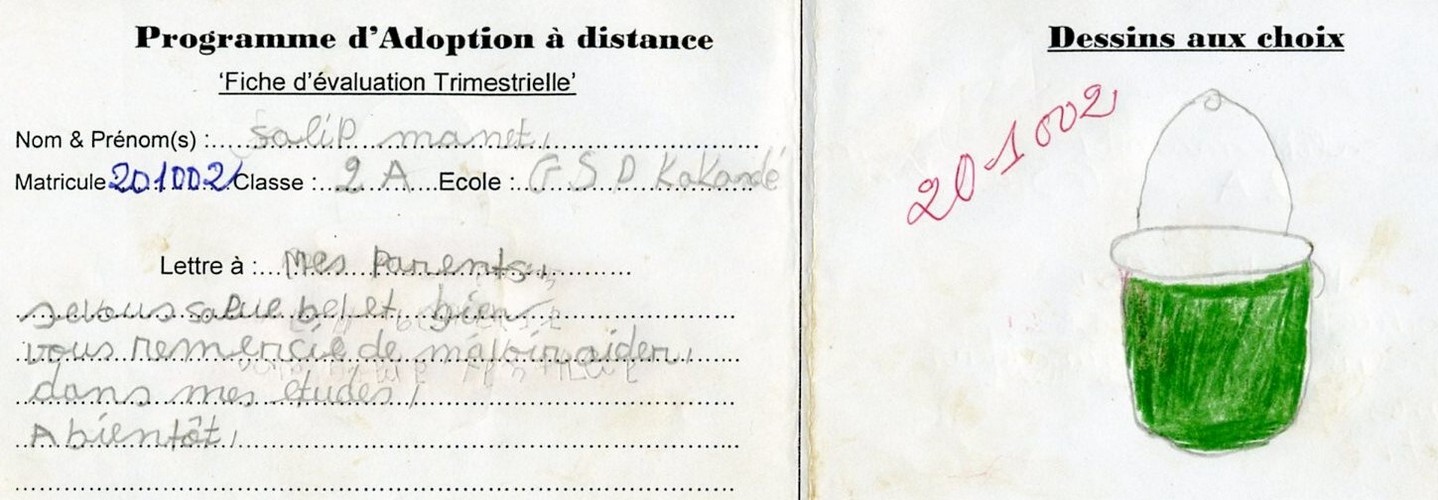 Programme d'Adoption à distance
'Fiche d'évaluation Trimestrielle'
Nom & Prénom(s) : salip manet
Matricule 201002 Classe : 2 A Ecole : G S D KaKandé
Lettre à : Mes Parents
je vous salue bel et bien
vous remercie de m'avoir aider
dans mes études
A bientôt
Dessins aux choix
201002